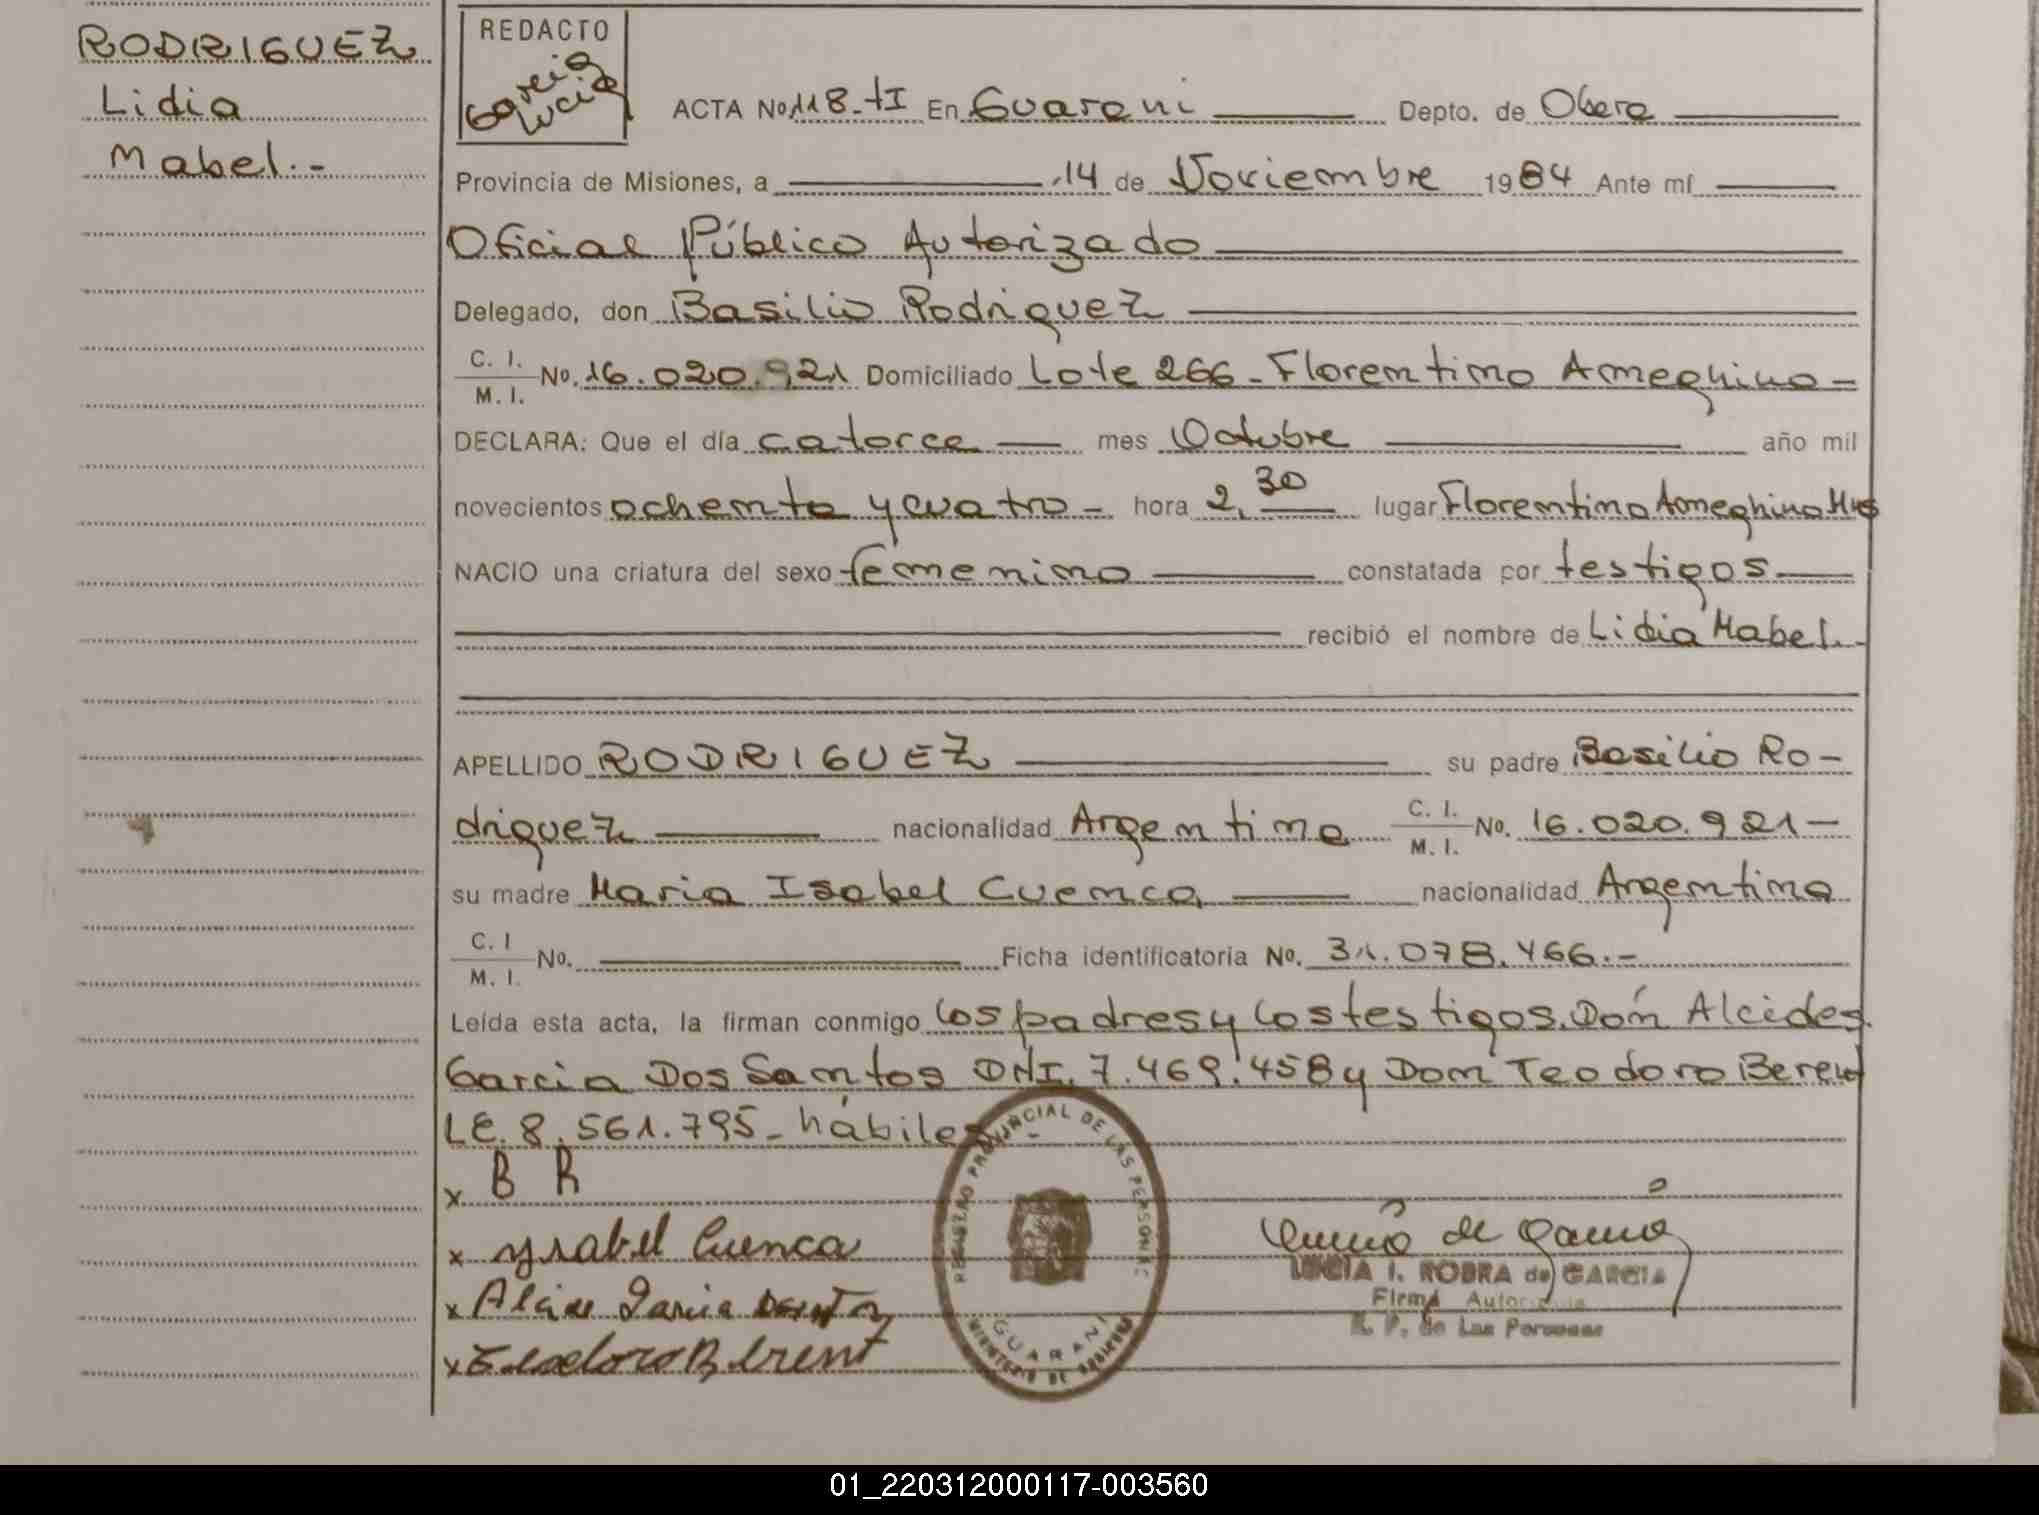 RODRIGUEZ
Lidia
Mabel.-
REDACTO
Garcia
Lucia
ACTA No 118-tI En Guarani Depto. de Obera
Provincia de Misiones, a 14 de Noviembre 1984 Ante mí
Oficial Público Autorizado
Delegado, don Basilio Rodriguez
C. I.
M. I. No. 16.020.921 Domiciliado Lote 266 - Florentino Ameghino -
DECLARA: Que el día catorce mes Octubre año mil
novecientos ochenta y cuatro - hora 2,30 lugar Florentino Ameghino Mnes
NACIO una criatura del sexo femenino constatada por testigos
recibió el nombre de Lidia Mabel.-
APELLIDO RODRIGUEZ su padre Basilio Ro-
driguez nacionalidad Argentina C. I.
M. I. No. 16.020.921-
su madre Maria Isabel Cuenca, nacionalidad Argentina
C. I
M. I. No. Ficha identificatoria No. 31.078.466.-
Leída esta acta, la firman conmigo los padres y los testigos. Don Alcides
Garcia Dos Santos DNI. 7.469.458 y Don Teodoro Berent
LE. 8.561.795 - hábiles -
x B R
x Ysabel Cuenca
x
x Teodoro Berent
REGISTRO PROVINCIAL DE LAS PERSONAS
GUARANI
MINISTERIO DE GOBIERNO
Lucia de Garcia
LUCIA I. ROBRA de GARCIA
Firma Autorizada
R. P. de Las Personas
01_220312000117-003560